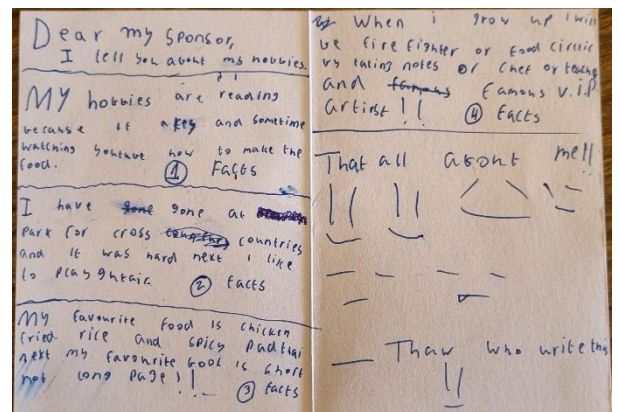 Dear my sponsor,
I tell you about my hobbies.
MY hobbies are reading
because it and sometime
watching youtube how to make the
food. 1 Facts
I have gone at
park for cross countries
and it was hard next I like
to play guitair. 2 facts
My favourite food is chicken
fried rice and spicy padthai
next my favourite book is short
not long page!! 3 facts
When i grow up i will
be fire fighter or food critic
by taking notes or chef or teaching
and famous V.I.P
artist!! 4 facts
That all about me!!
Thaw who write this